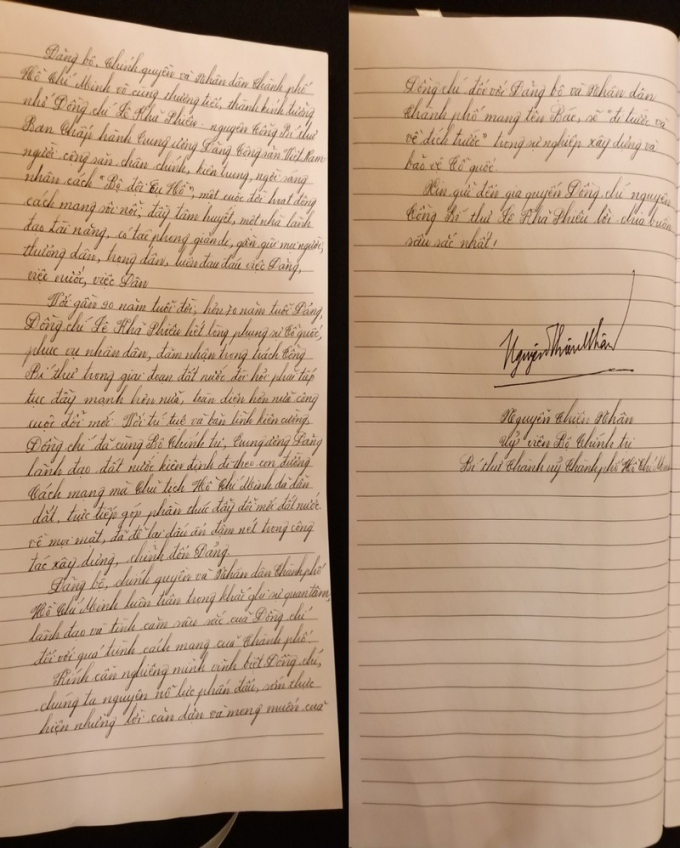 Đảng bộ, Chính quyền và Nhân dân Thành phố
Hồ Chí Minh vô cùng thương tiếc, thành kính tưởng
nhớ Đồng chí Lê Khả Phiêu - nguyên Tổng Bí thư
Ban Chấp hành Trung ương Đảng Cộng sản Việt Nam -
người cộng sản chân chính, kiên trung, ngời sáng
nhân cách "Bộ đội Cụ Hồ"; một cuộc đời hoạt động
cách mạng sôi nổi, đầy tâm huyết, một nhà lãnh
đạo tài năng, có tác phong giản dị, gần gũi mọi người,
thương dân, trọng dân, luôn đau đáu việc Đảng,
việc nước, việc Dân
Với gần 90 năm tuổi đời, hơn 70 năm tuổi Đảng,
Đồng chí Lê Khả Phiêu hết lòng phụng sự Tổ quốc,
phục vụ nhân dân, đảm nhận trọng trách Tổng
Bí thư trong giai đoạn đất nước đòi hỏi phải tiếp
tục đẩy mạnh hơn nữa, toàn diện hơn nữa công
cuộc đổi mới. Với trí tuệ và bản lĩnh kiên cường,
Đồng chí đã cùng Bộ Chính trị, Trung ương Đảng
lãnh đạo đất nước kiên định đi theo con đường
Cách mạng mà Chủ tịch Hồ Chí Minh đã dẫn
dắt, trực tiếp góp phần thúc đẩy đổi mới đất nước
về mọi mặt, đã để lại dấu ấn đậm nét trong công
tác xây dựng, chỉnh đốn Đảng.
Đảng bộ, chính quyền và Nhân dân Thành phố
Hồ Chí Minh luôn trân trọng khắc ghi sự quan tâm,
lãnh đạo và tình cảm sâu sắc của Đồng chí
đối với quá trình cách mạng của Thành phố.
Kính cẩn nghiêng mình vĩnh biệt Đồng chí,
chúng ta nguyện nỗ lực phấn đấu, sớm thực
hiện những lời căn dặn và mong muốn của
Đồng chí đối với Đảng bộ và Nhân dân
Thành phố mang tên Bác, sẽ "đi trước và
về đích trước" trong sự nghiệp xây dựng và
bảo vệ Tổ quốc.
Xin gửi đến gia quyến Đồng chí nguyên
Tổng Bí thư Lê Khả Phiêu lời chia buồn
sâu sắc nhất!
Nguyễn Thiện Nhân
Nguyễn Thiện Nhân
Uỷ viên Bộ Chính trị
Bí thư Thành uỷ Thành phố Hồ Chí Minh